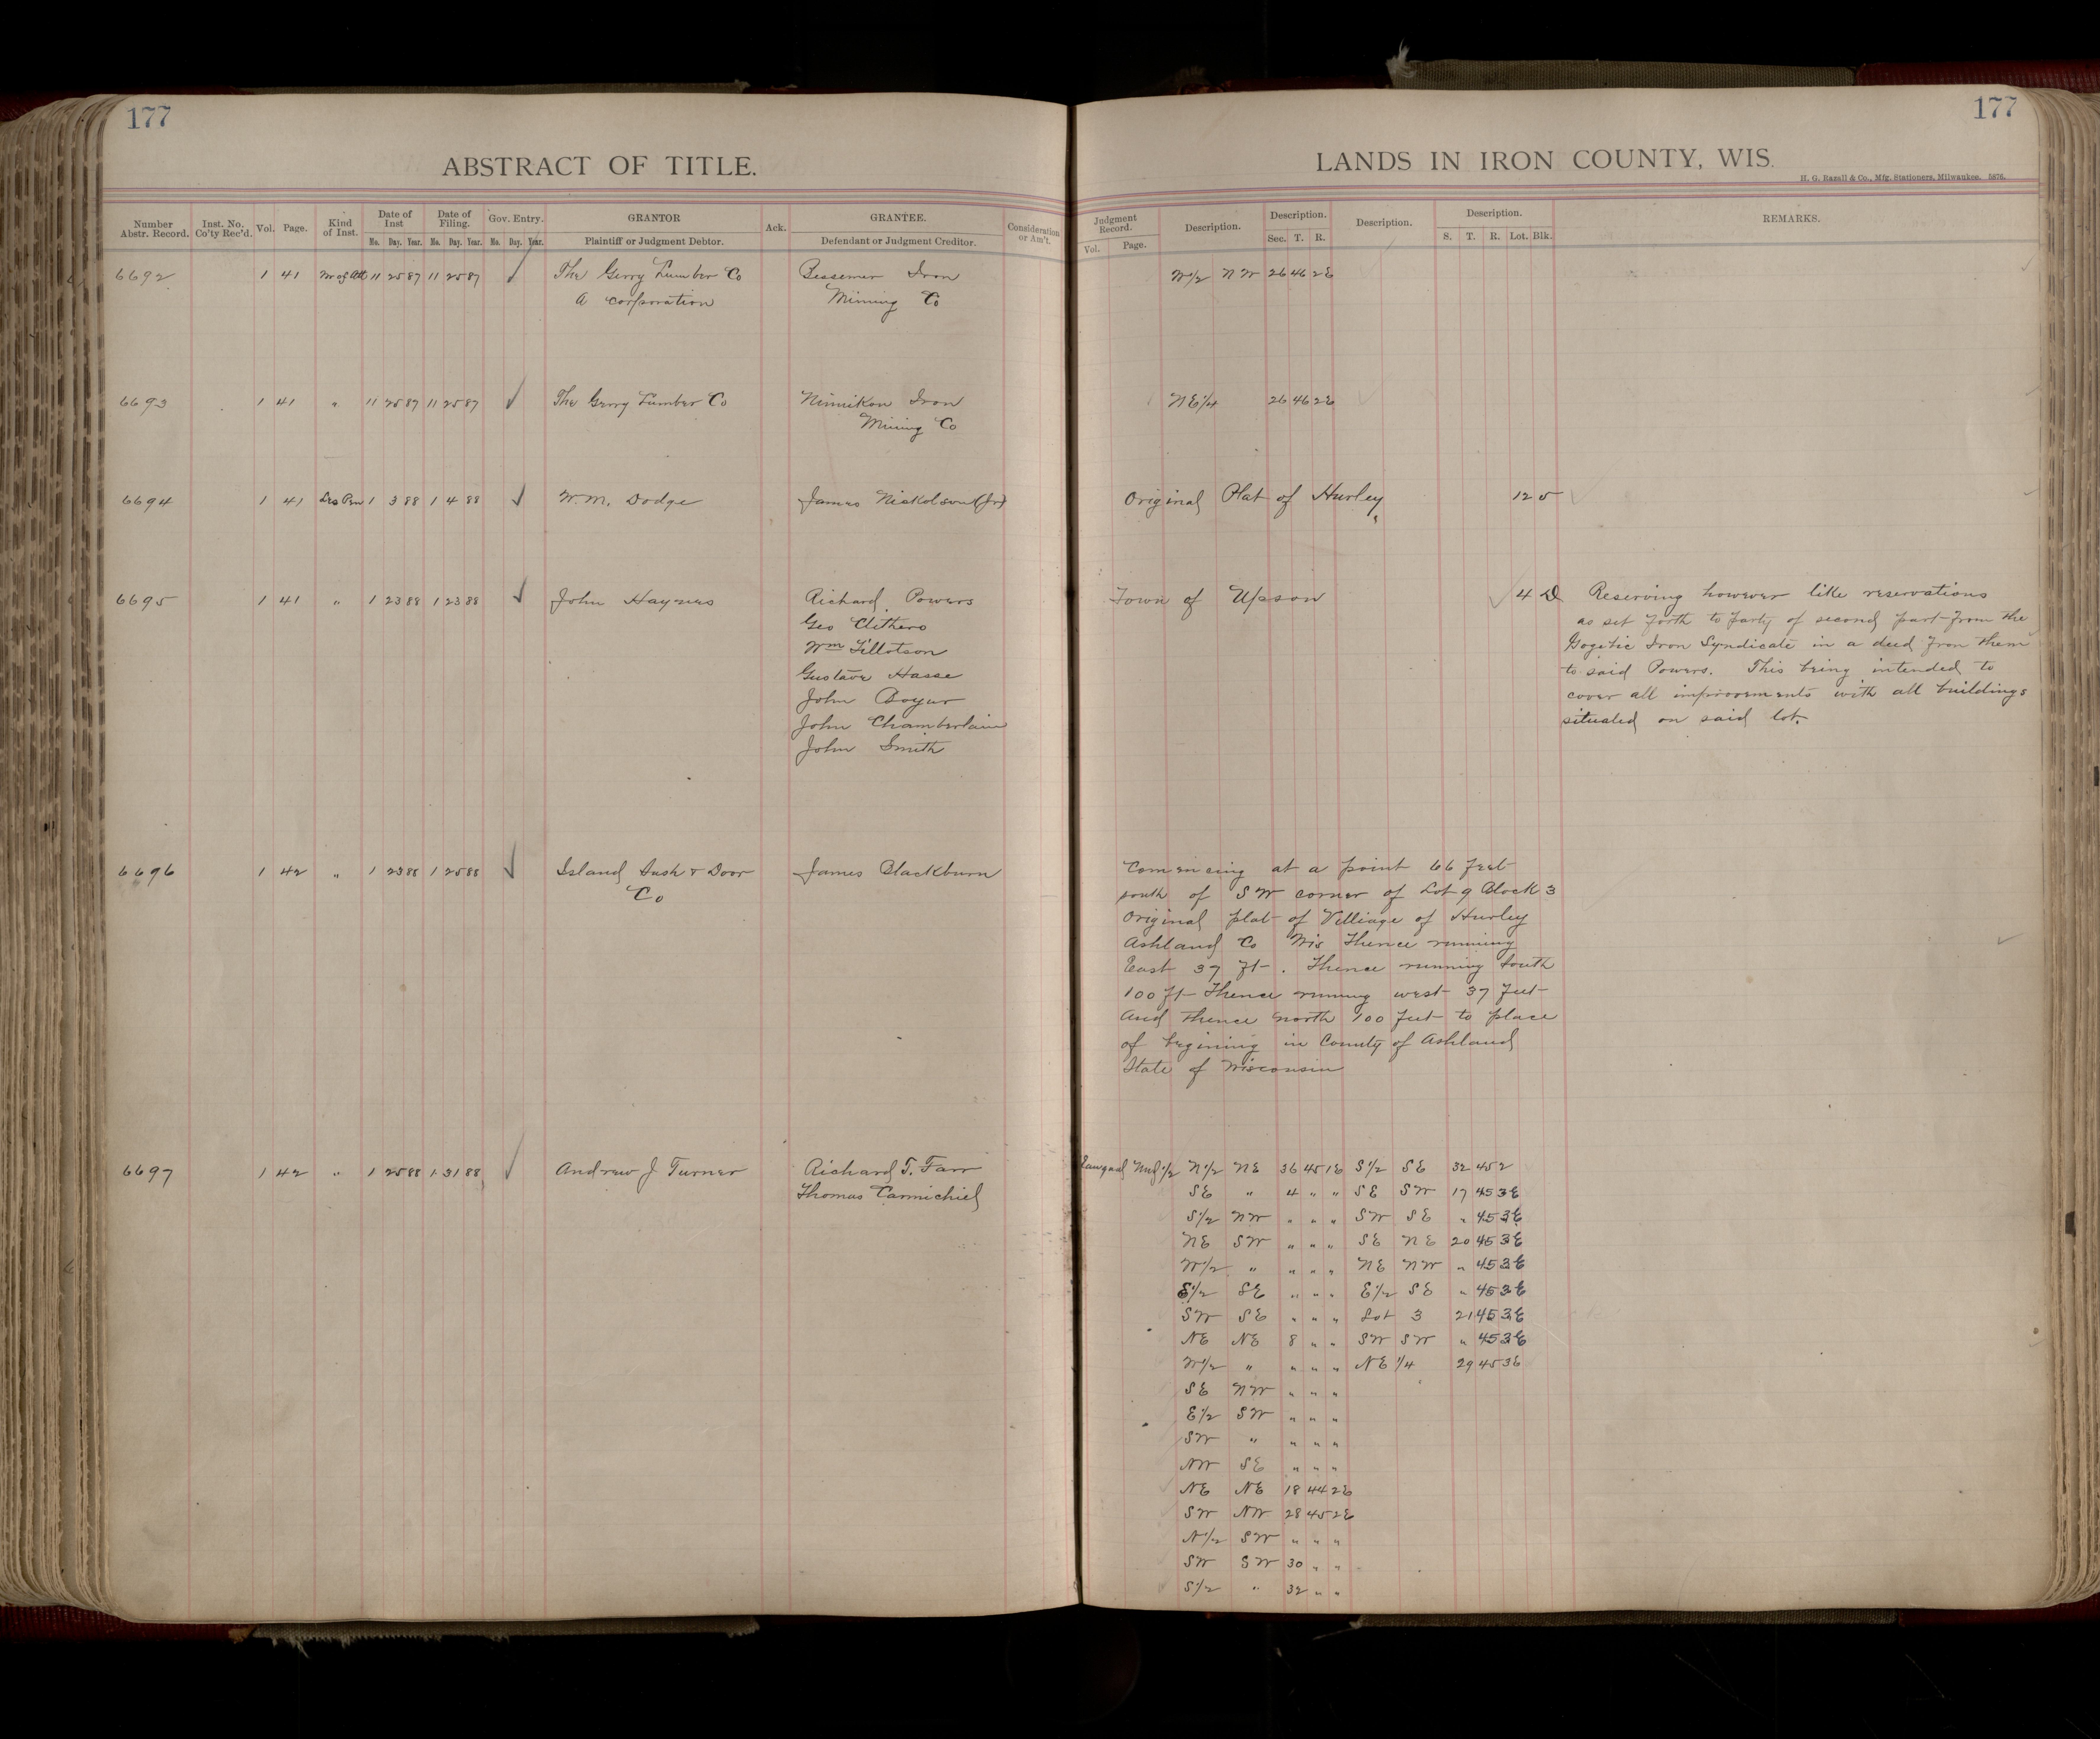 177
177
ABSTRACT OF TITLE.
LANDS IN IRON COUNTY, WIS.
H. G. Razall & Co., Mfg. Stationers, Milwaukee. 5876.
Number Abstr. Record. Inst. No. Co'ty Rec'd. Vol. Page. Kind of Inst. Date of Inst Mo. Day. Year. Date of Filing. Mo. Day. Year. Gov. Entry. Mo. Day. Year. GRANTOR Plaintiff or Judgment Debtor. Ack. GRANTEE. Defendant or Judgment Creditor. Consideration or Am't.
Judgment Record. Vol. Page. Description. Description. Sec. T. R. Description. Description. S. T. R. Lot. Blk. REMARKS.
6692 1 41 Wr of Att 11 25 87 11 25 87 ✓ The Gerry Lumber Co Bessemer Iron W1/2 NW 26 46 2E
A corporation Mining Co
6693 1 41 " 11 25 87 11 25 87 ✓ The Gerry Lumber Co Nimikon Iron NE1/4 26 46 2E
Mining Co
6694 1 41 Lis Pen 1 3 88 1 4 88 ✓ W. M. Dodge James Nickolson (Jr) Original Plat of Hurley 12 5
6695 1 41 " 1 23 88 1 23 88 ✓ John Haynes Richard Powers Town of Upson ✓ 4 D Reserving however like reservations
Geo Clithero as set forth to party of second part from the
Wm Tillotson Gogebic Iron Syndicate in a deed from them
Gustave Hasse to said Powers. This being intended to
John Boyer cover all improvements with all buildings
John Chamberlain situated on said lot.
John Smith
6696 1 42 " 1 23 88 1 25 88 ✓ Island Sash & Door James Blackburn Comencing at a point 66 feet
Co south of SW corner of Lot 9 Block 3
Original plat of Villiage of Hurley
Ashland Co Wis Thence running
East 37 ft. Thence running South
100 ft Thence running west 37 feet
And thence north 100 feet to place
of begining in County of Ashland
State of Wisconsin
6697 1 42 " 1 25 88 1 31 88 ✓ Andrew J Turner Richard T. Farr Und 1/2 N1/2 NE 36 45 1E S1/2 SE 32 45 2
Thomas Carmichiel SE " 4 " " SE SW 17 45 3E
S1/2 NW " " " SW SE " 45 3E
NE SW " " " SE NE 20 45 3E
W1/2 " " " " NE NW " 45 3E
E1/2 SE " " " E1/2 SE " 45 3E
SW SE " " " Lot 3 21 45 3E
NE NE 8 " " SW SW " 45 3E
W1/2 " " " " NE 1/4 29 45 3E
SE NW " " "
E1/2 SW " " "
SW " " " "
NW SE " " "
NE NE 18 44 2E
SW NW 28 45 2E
N1/2 SW " " "
SW SW 30 " "
S1/2 " 32 " "